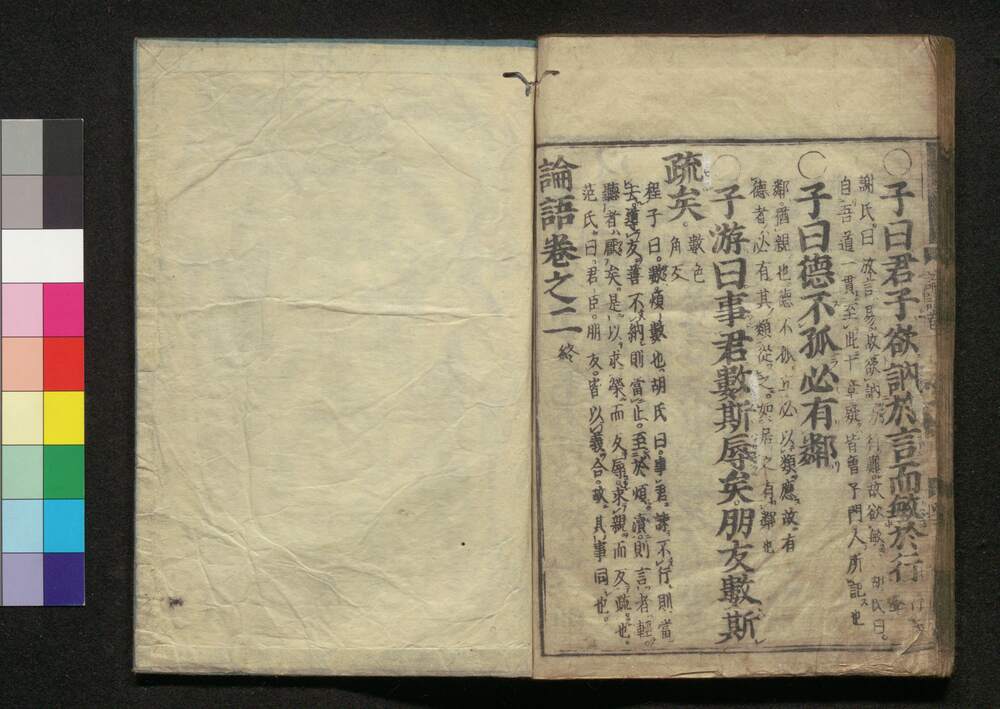 ○子曰君子欲訥於言而敏於行
謝氏曰放言易故欲訥力行難故欲敏 胡氏曰
自吾道一貫至此十章疑皆曾子門人所記也
○子曰德不孤必有鄰
鄰猶親也德不孤立必以類應故有
德者必有其類從之如居之有鄰也
○子游曰事君數斯辱矣朋友數斯
疏矣 數色
角反
程子曰數煩數也胡氏曰事君諫不行則當
去導友善不納則當止至於煩瀆則言者輕
聽者厭矣是以求榮而反辱求親而反疏也
范氏曰君臣朋友皆以義合故其事同也
論語卷之二 終